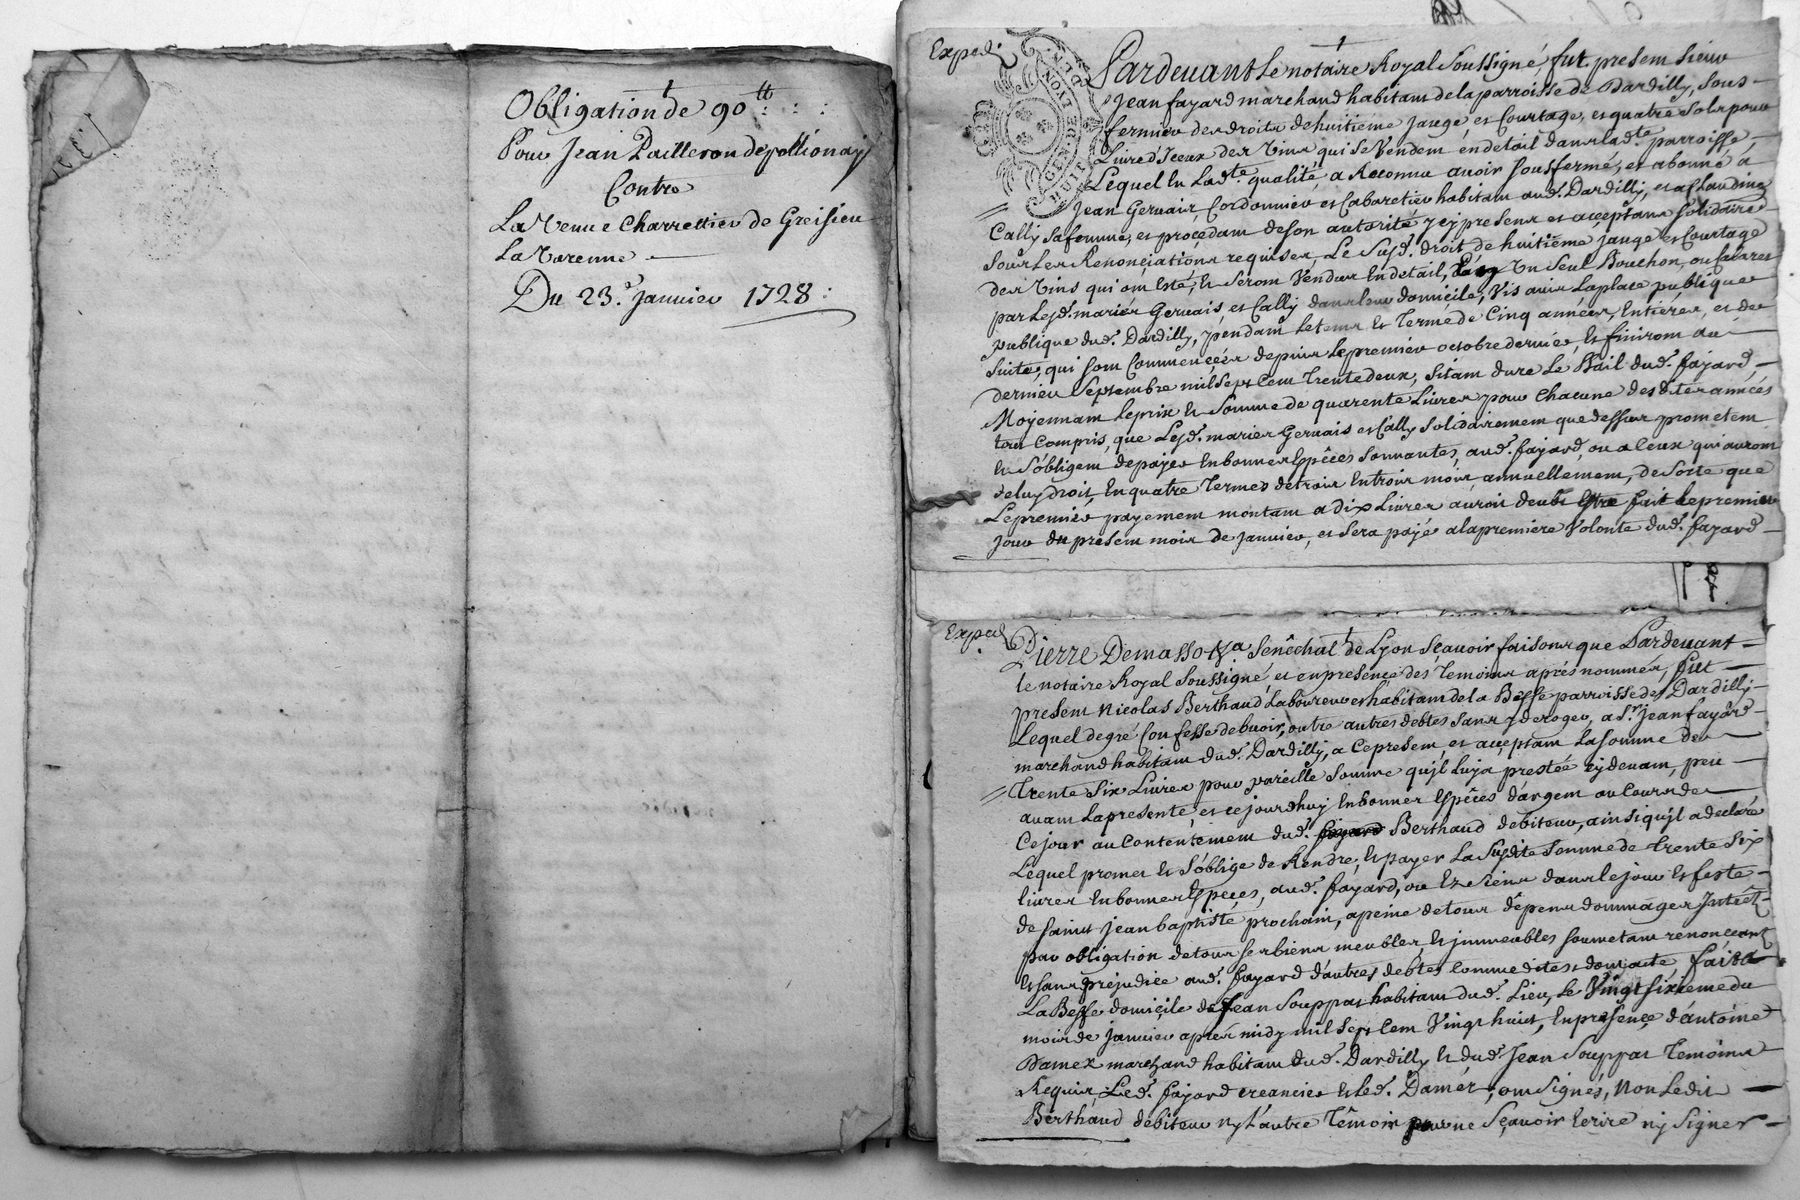 Obligation de 90 tt
Pour Jean Pailleron de pollionay
Contre
La Veuve Charrettier de Greisieu
La Varenne
Du 23.e Janvier 1728
Exped.
GEN. DE LYON
HUIT DEN.
Pardevant le notaire Royal soussigné, fut present sieur
Jean fayard marchand habitant de la parroisse de Dardilly, sous-
fermier des droits de huitiéme jauge et Courtage, et quatre sols pour
Livre d'Iceux des Vins qui se Vendent en détail dans lad.te parroisse,
Lequel en lad.te qualité a Reconnu avoir sousfermé, et abonné a
Jean Gervais, Cordonnier et Cabaretier habitant aud. Dardilly, et a Claudine
Cally sa femme, et procedant de son autorité y cy presens et acceptans solidaire
sous les Renonciations requises, Le susd. droit de huitiéme jauge et Courtage
des Vins qui ont esté, et seront Vendus En détail, Un seul Bouchon, ou
par lesd. mariés Gervais et Cally dans leur domicile, Vis avis la place publique
publique dud. Dardilly, pendant le tems et Terme de Cinq années, Entieres, et de
suite, qui sont Commencées depuis le premier octobre dernier, et finiront au
dernier Septembre mil sept cent Trente deux, si tant dure le Bail dud. fayard,
Moyennant le prix et somme de quarente Livres pour Chacune desdites années
tout Compris, que lesd. mariés Gervais et Cally solidairement que dessus prometent
et s'obligent de payer En bonnes Espêces sonnantes, aud. fayard, ou a Ceux qui auront
de luy droit, En quatre Termes de trois En trois mois annuellement, de sorte que
Le premier payement montant a dix Livres auroit deub Estre fait le premier
jour du present mois de Janvier, et sera payé a la premiere Volonté dud. fayard
Exped.
Pierre Demasso &.a Sénéchal de Lyon Sçavoir faisons que Pardevant
le notaire Royal soussigné et en presence des Temoins aprés nommés, fut
present Nicolas Berthaud Laboureur et habitant de la Besse parroisse de Dardilly
Lequel de gré Confesse debvoir, outre autres debtes sans y deroger, a S.r Jean fayard
marchand habitant dud. Dardilly, a Ce present et acceptant la somme de
Trente Six Livres pour pareille somme qu'il luy a prestée cy devant, peu
avant la presente, et cejourdhuy En bonnes Espêces d'argent au Cours de
Ce jour au Contentement dud. fayard Berthaud debiteur, ainsi qu'il a declaré
Lequel promet et s'oblige de Rendre, et payer la susdite somme de trente six
livres En bonnes Espeçes, aud. fayard, ou Ez siens dans le jour et feste
de saint Jean baptiste prochain, a peine de tous dêpens dommages Intérêt
par obligation de tous ses biens meubles et immeubles soumetant renonceant
Et sans prejudice aud. fayard d'autres debtes comme dit est dont acte fait a
La Besse domicile de Jean Souppat habitant dud. Lieu, le Vingt sixiéme du
mois de Janvier aprés midy mil sept cent Vingt huit, En présence d'antoine
Damez marchand habitant dud. Dardilly et dud. Jean Souppat Temoins
Requis, Led. fayard creancier et led. Damez, ont signés, Non ledit
Berthaud debiteur ny l'autre Témoin pour ne sçavoir Ecrire ny signer